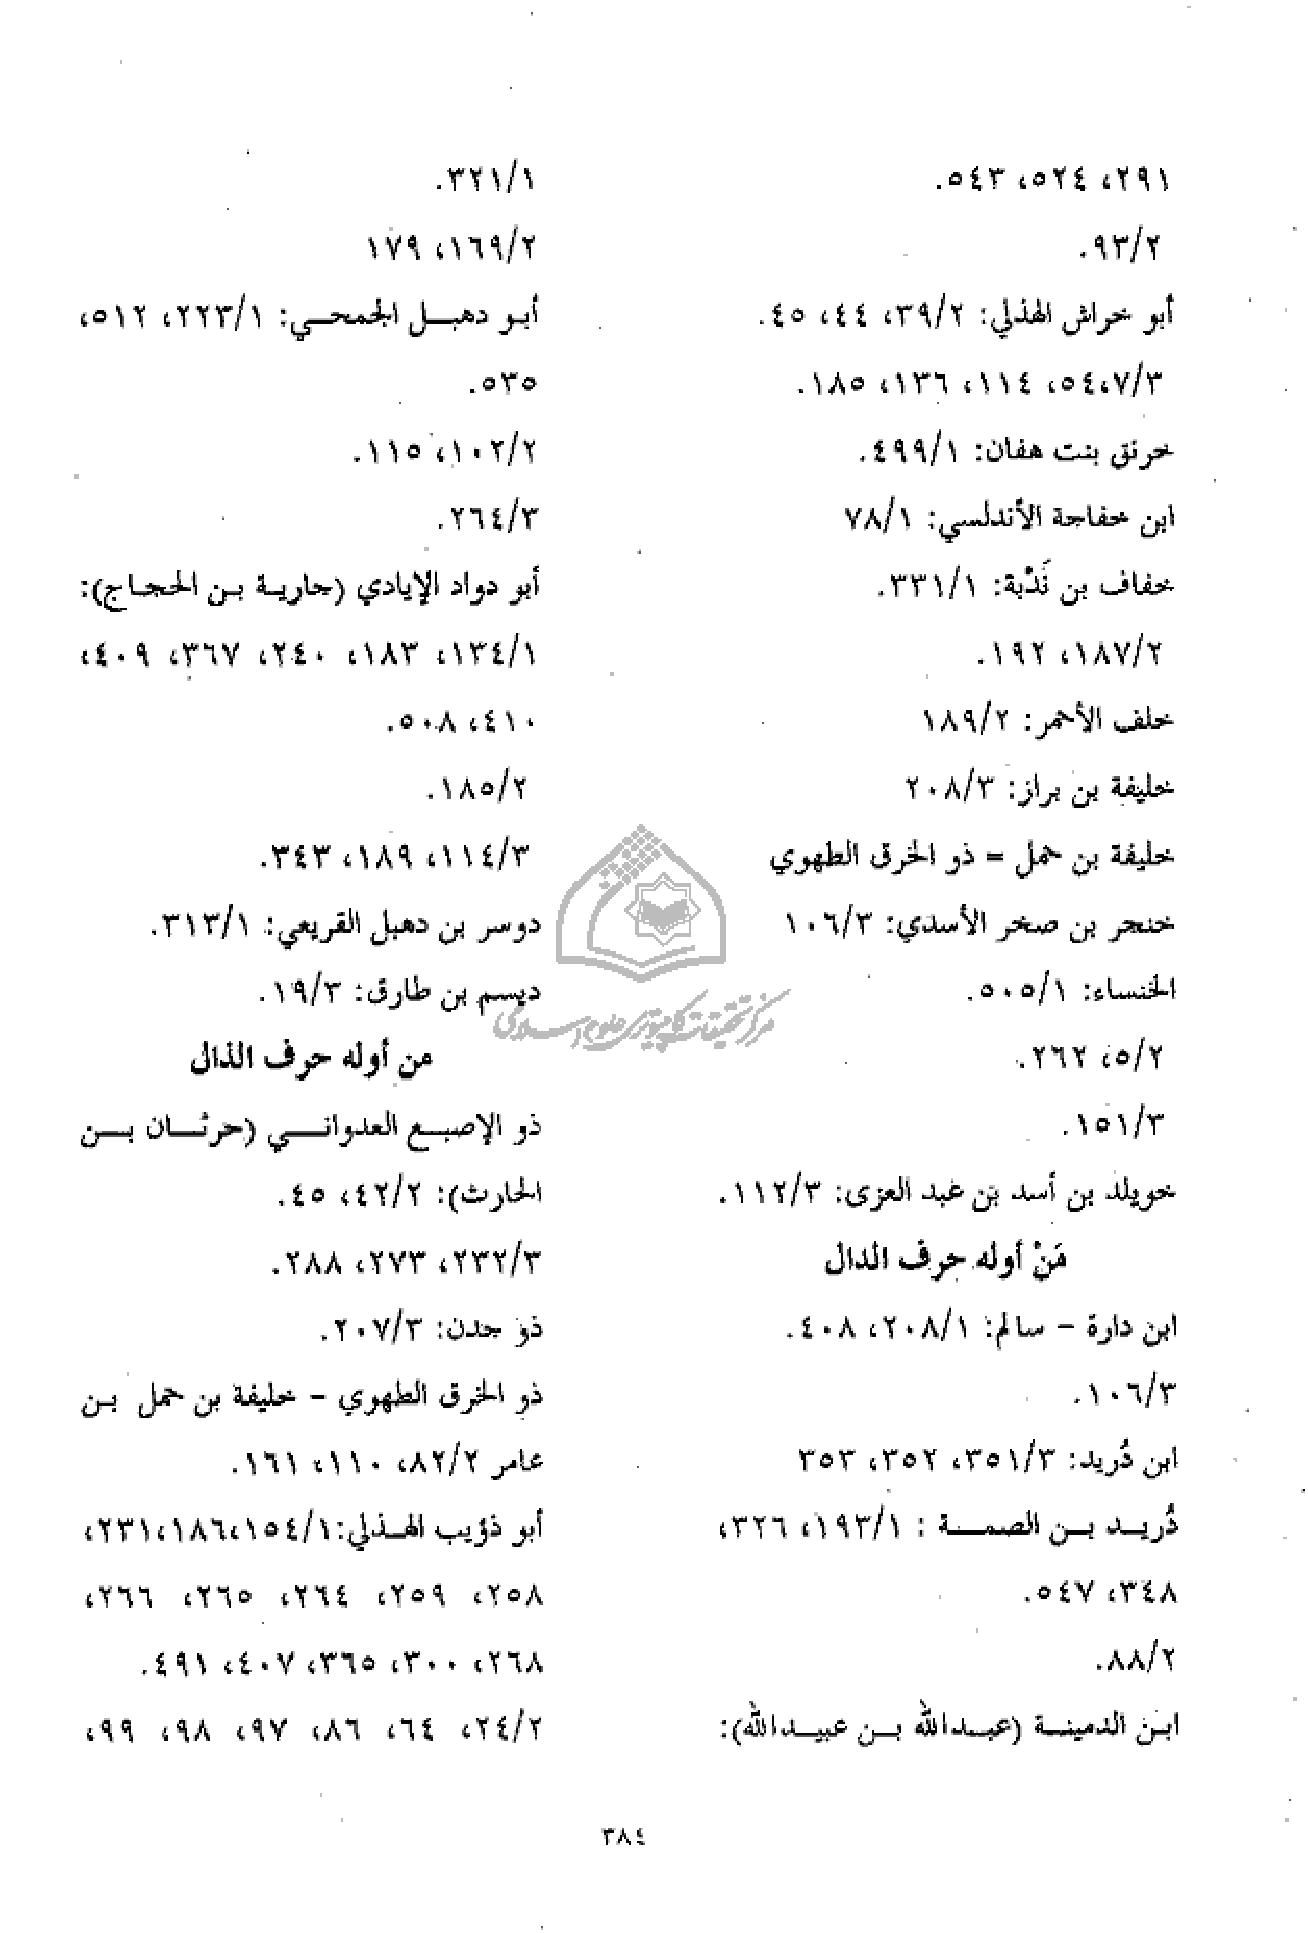 ٢٩١، ٥٢٤، ٥٤٣.
٩٣/٢.
أبو خراش الهذلي: ٣٩/٢، ٤٤، ٤٥.
٧/٣،٥٤، ١١٤، ١٣٦، ١٨٥.
خرنق بنت هفان: ٤٩٩/١.
ابن خفاجة الأندلسي: ٧٨/١
خفاف بن نَدْبة: ٣٣١/١.
١٨٧/٢، ١٩٢.
خلف الأحمر: ١٨٩/٢
خليفة بن براز: ٢٠٨/٣
خليفة بن حمل = ذو الخرق الطهوي
خنجر بن صخر الأسدي: ١٠٦/٣
الخنساء: ٥٠٥/١.
٥/٢، ٢٦٢.
١٥١/٣.
خويلد بن أسد بن عبد العزى: ١١٢/٣.
مَنْ أوله حرف الدال
ابن دارة - سالم: ٢٠٨/١، ٤٠٨.
١٠٦/٣.
ابن دُريد: ٣٥١/٣، ٣٥٢، ٣٥٣
دُريـد بـن الصمـة : ١٩٣/١، ٣٢٦،
٣٤٨، ٥٤٧.
٨٨/٢.
ابـن الدمينـة (عبـدالله بـن عبيـدالله):
٣٢١/١.
١٦٩/٢، ١٧٩
أبـو دهبـل الجمحـي: ٢٢٣/١، ٥١٢،
٥٣٥.
١٠٢/٢، ١١٥.
٢٦٤/٣.
أبو دواد الإيادي (جارية بن الحجاج):
١٣٤/١، ١٨٣، ٢٤٠، ٣٦٧، ٤٠٩،
٤١٠، ٥٠٨.
١٨٥/٢.
١١٤/٣، ١٨٩، ٣٤٣.
دوسر بن دهبل القريعي: ٣١٣/١.
ديسم بن طارق: ١٩/٣.
من أوله حرف الذال
ذو الإصبـع العدوانـي (حرثـان بـن
الحارث): ٤٢/٢، ٤٥.
٢٣٢/٣، ٢٧٣، ٢٨٨.
ذو جدن: ٢٠٧/٣.
ذو الخرق الطهوي - خليفة بن حمل بن
عامر ٨٢/٢، ١١٠، ١٦١.
أبو ذؤيب الهـذلي:١٥٤/١،١٨٦،٢٣١،
٢٥٨، ٢٥٩، ٢٦٤، ٢٦٥، ٢٦٦،
٢٦٨، ٣٠٠، ٣٦٥، ٤٠٧، ٤٩١.
٢٤/٢، ٦٤، ٨٦، ٩٧، ٩٨، ٩٩،
مركز تحقيقات كامپيوتري علوم اسلامي
٣٨٤